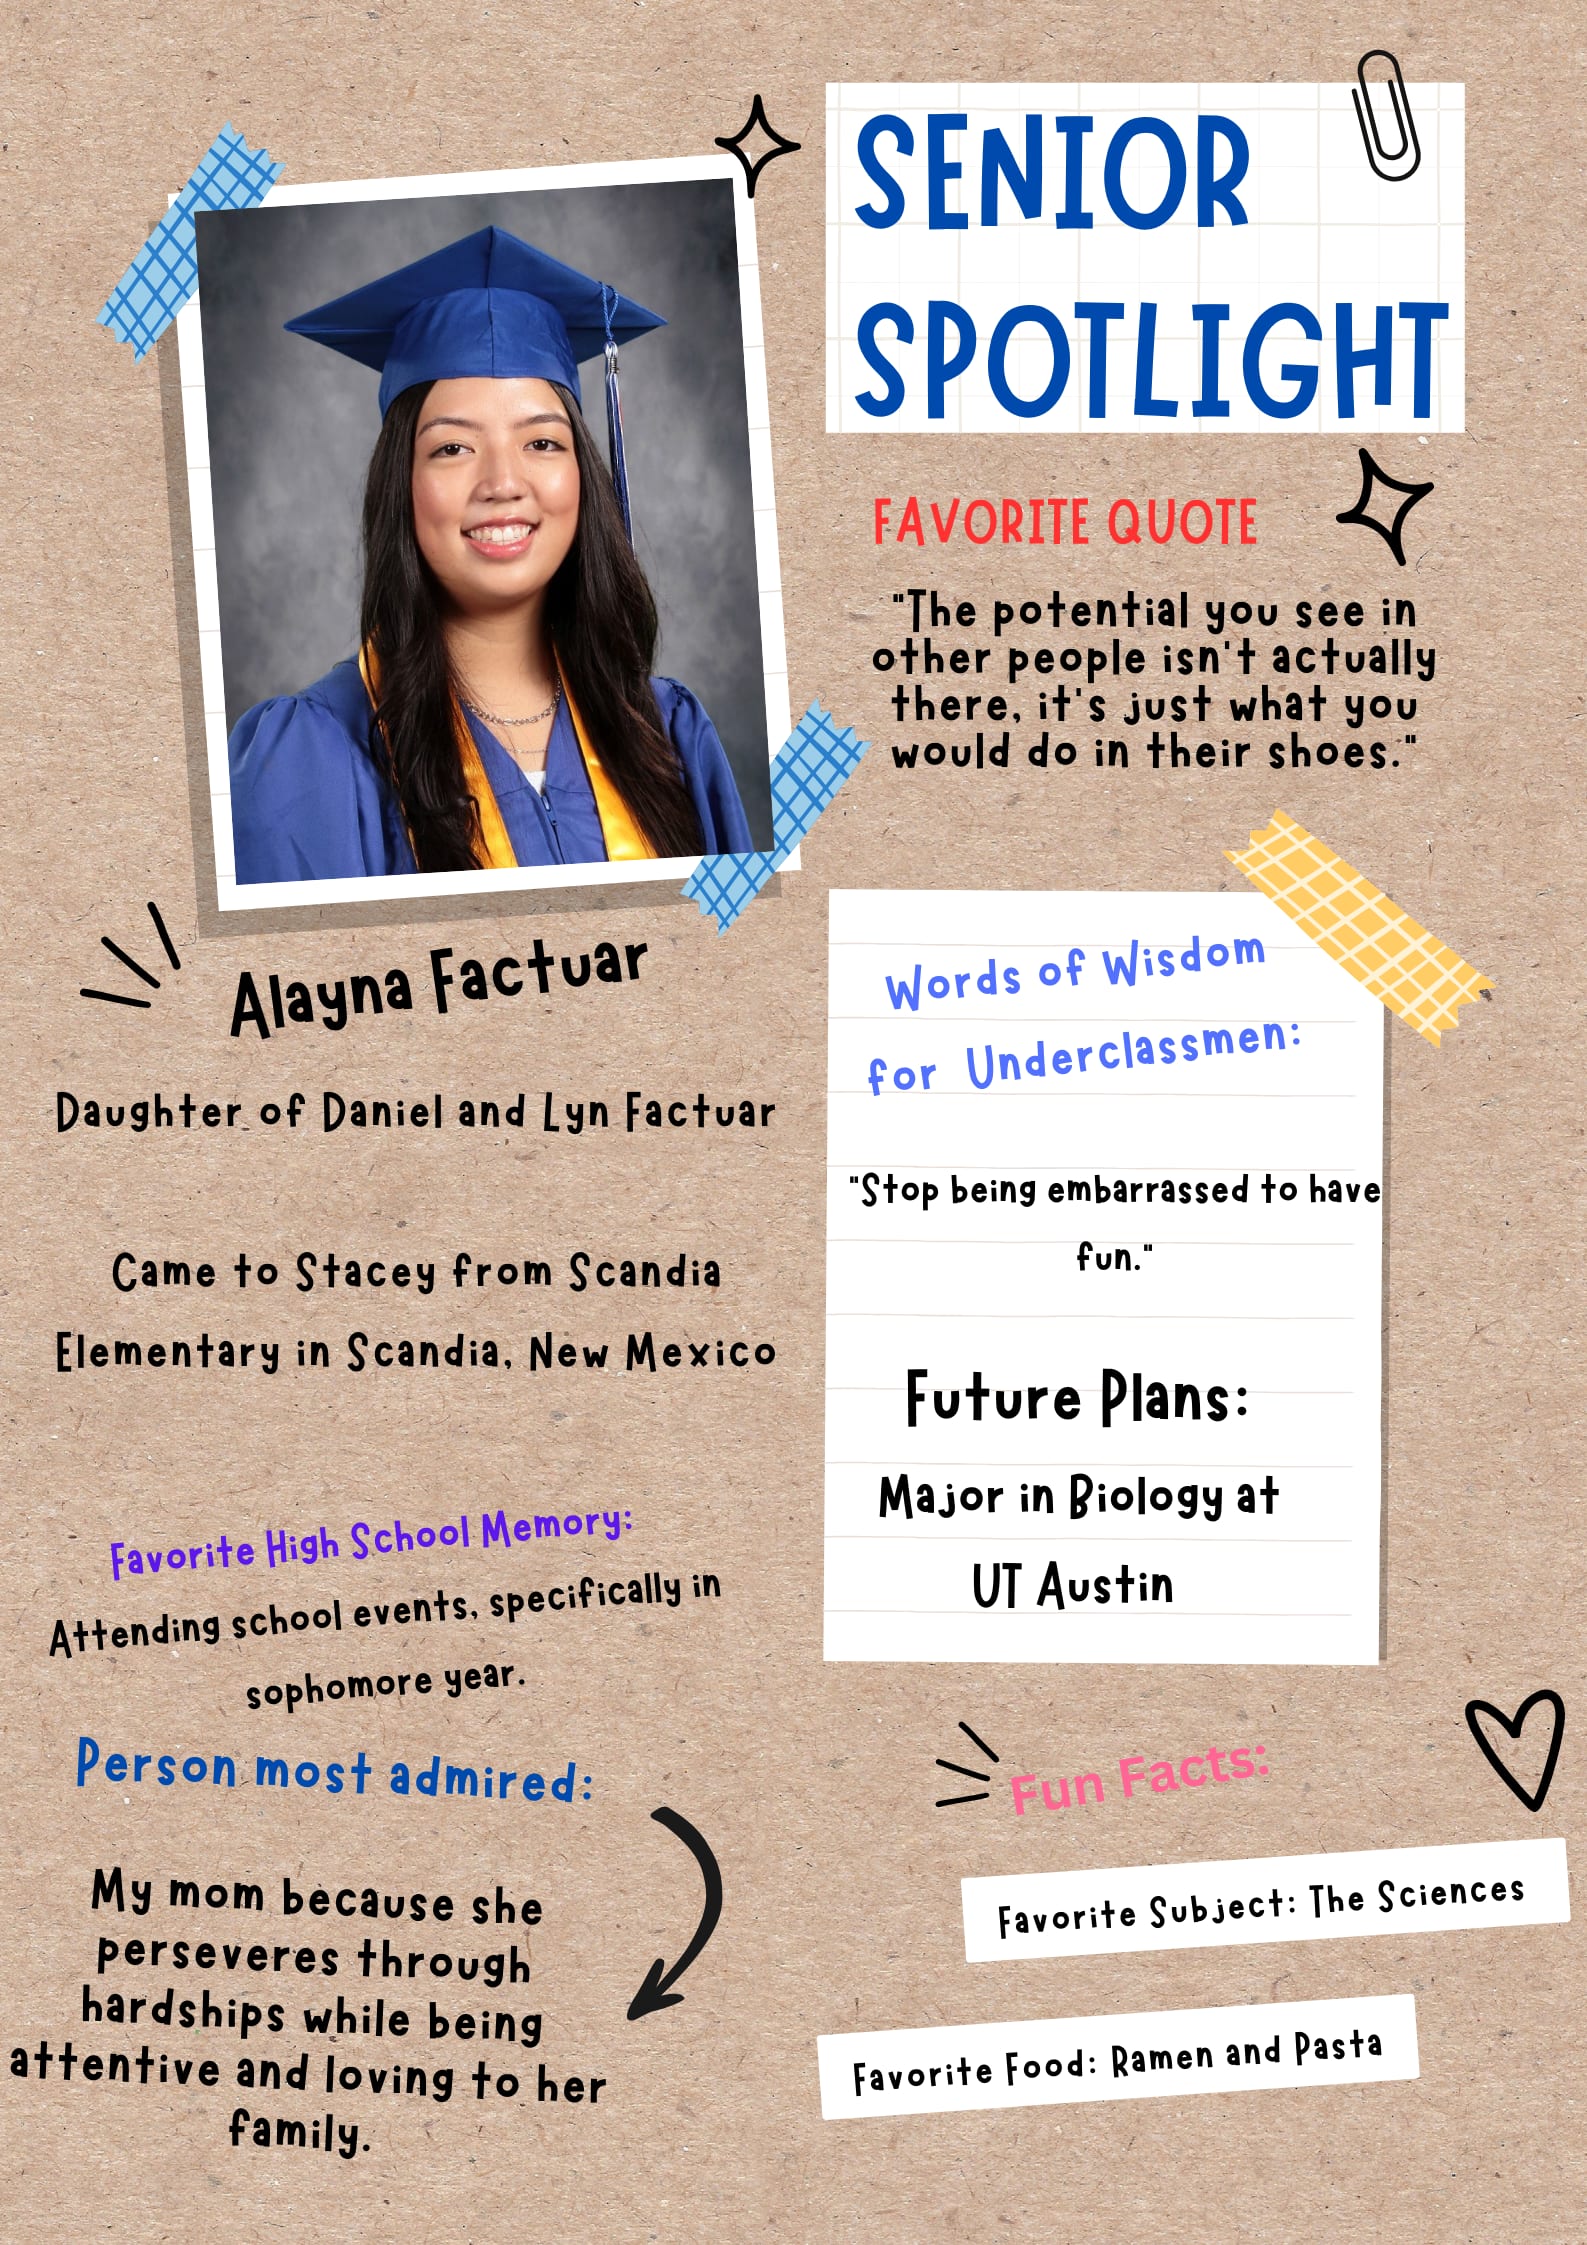 SENIOR
SPOTLIGHT
FAVORITE QUOTE
"The potential you see in
other people isn't actually
there, it's just what you
would do in their shoes."
Alayna Factuar
Daughter of Daniel and Lyn Factuar
Came to Stacey from Scandia
Elementary in Scandia, New Mexico
Words of Wisdom
for Underclassmen:
"Stop being embarrassed to have
fun."
Future Plans:
Major in Biology at
UT Austin
Favorite High School Memory:
Attending school events, specifically in
sophomore year.
Person most admired:
My mom because she
perseveres through
hardships while being
attentive and loving to her
family.
Fun Facts:
Favorite Subject: The Sciences
Favorite Food: Ramen and Pasta